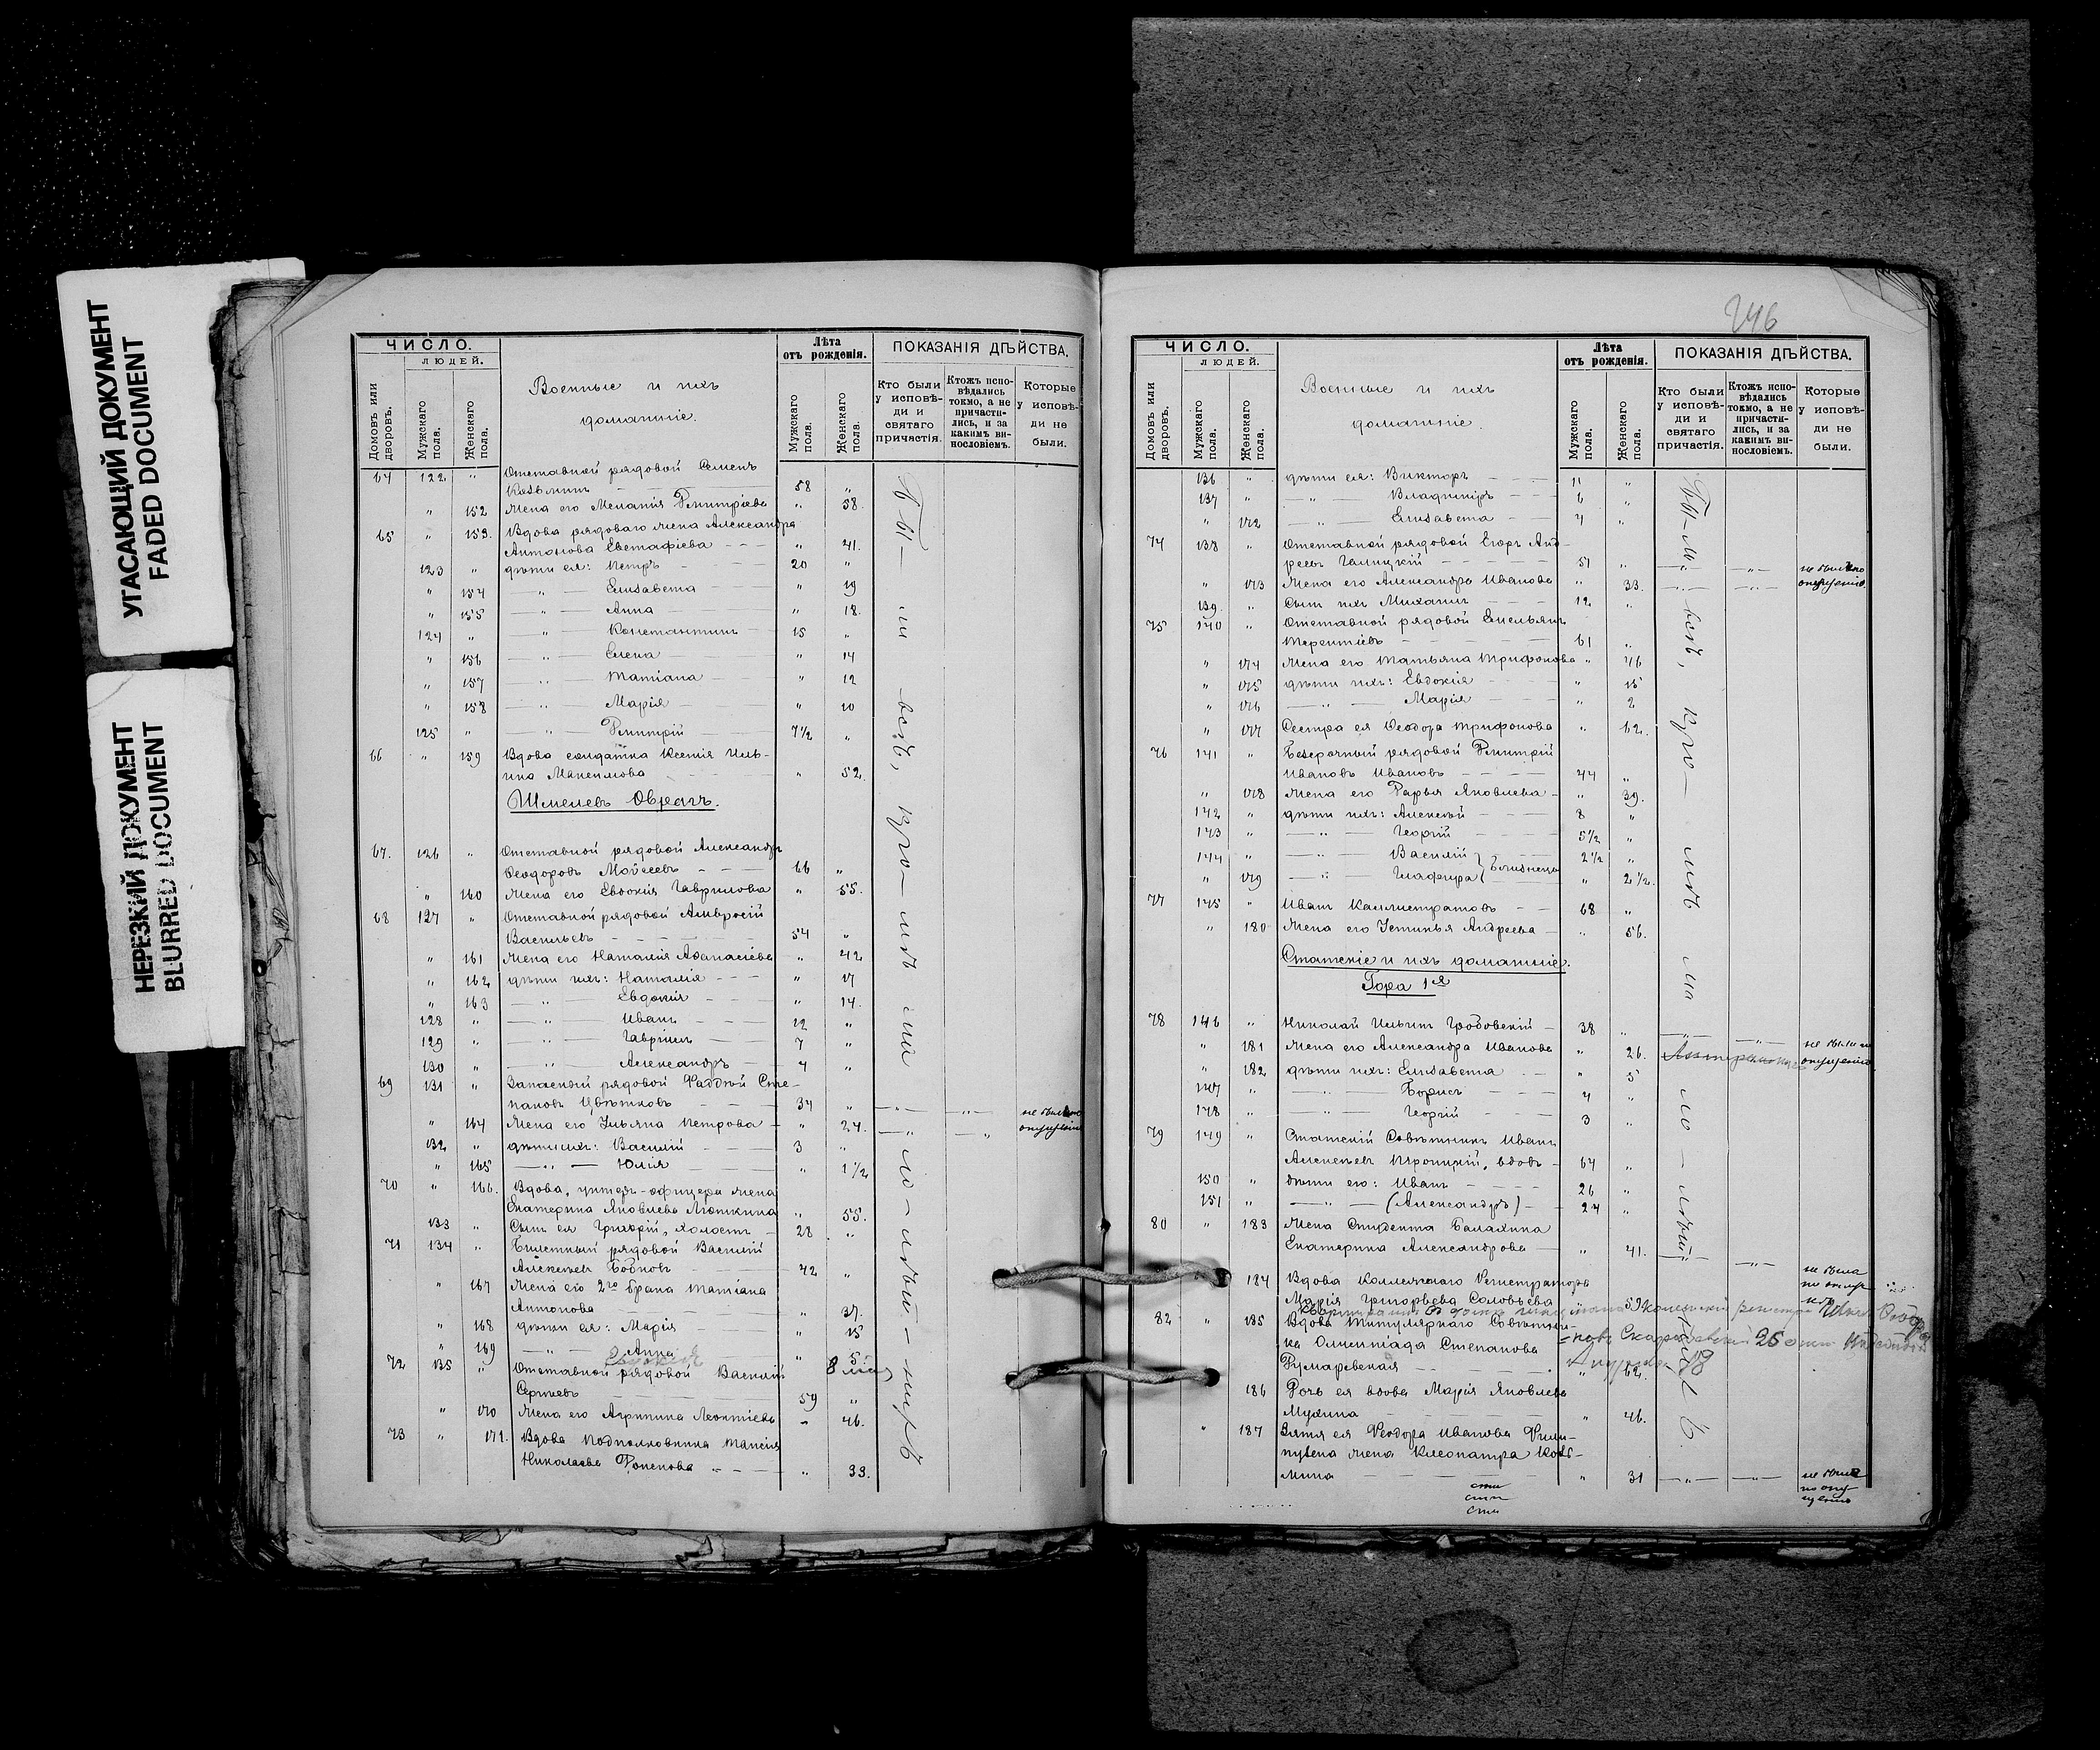 УГАСАЮЩИЙ ДОКУМЕНТ
FADED DOCUMENT
НЕРЕЗКИЙ ДОКУМЕНТ
BLURRED DOCUMENT
ЧИСЛО.
ЛЮДЕЙ.
Домовъ или дворовъ.
Мужскаго пола.
Женскаго пола.
Военные и ихъ
домашніе.
Лѣта
отъ рожденія.
Мужскаго пола.
Женскаго пола.
ПОКАЗАНІЯ ДѢЙСТВА.
Кто были у исповѣди и святаго причастія.
Ктожъ исповѣдались токмо, а не причастились, и за какимъ винословіемъ.
Которые у исповѣди не были.
64 122 " Отставной рядовой Семенъ
Козьминъ 58 "
" 152 Жена его Меланія Дмитріева " 58.
65 " 153. Вдова рядоваго жена Александра
Антонова Евстафіева " 41.
123 " дѣти ея: Петръ 20 "
" 154 — " — Елизавета " 19
" 155 — " — Анна " 18.
124 " — " — Константинъ 15 "
" 156 — " — Елена " 14
" 157 — " — Татіана " 12
" 158 — " — Марія " 10
125 " — " — Дмитрій 7½ "
66 " 159 Вдова солдатка Ксенія Иль-
ина Максимова " 52.
Шмелевъ Оврагъ.
67. 126 " Отставной рядовой Александръ
Ѳеодоровъ Мойсеевъ 66 "
" 160 Жена его Евдокія Гаврилова " 55.
68 127 " Отставной рядовой Амвросій
Васильевъ 54 "
" 161 Жена его Наталія Аѳанасіева " 42
" 162 дѣти ихъ: Наталія " 17
" 163 — " — Евдокія " 14.
128 " — " — Иванъ 12 "
129 " — " — Гавріилъ 7 "
130 " — " — Александръ 4 "
69 131 " Запасный рядовой Ѳаддей Сте-
пановъ Цвѣтковъ 34 " — " — — " — не были по
" 164 Жена его Ульяна Петрова " 24. " " опущенію
132 " дѣти ихъ: Василій 3 "
" 165 — " — Юлія " 1½
70 " 166. Вдова, унтеръ-офицера жена
Екатерина Яковлева " 55.
133 " Сынъ ея Григорій, холостъ 28 "
71 134 " Билетный рядовой Василій
Алексеевъ Бобковъ 42 "
" 167 Жена его 2го брака Татіана
Антонова " 37.
" 168 дѣти ея: Марія " 15
" 169 — " — Анна " 5
72 135 " Отставной рядовой Василій
Сергѣевъ 59 "
" 170 Жена его Агрипина Леонтіева " 46.
73 " 171. Вдова Подполковника Таисія
Николаева " 33.
Бы - ли всѣ, кро - мѣ ма - ло - лѣт - нихъ
246
ЧИСЛО.
ЛЮДЕЙ.
Домовъ или дворовъ.
Мужскаго пола.
Женскаго пола.
Военные и ихъ
домашніе.
Лѣта
отъ рожденія.
Мужскаго пола.
Женскаго пола.
ПОКАЗАНІЯ ДѢЙСТВА.
Кто были у исповѣди и святаго причастія.
Ктожъ исповѣдались токмо, а не причастились, и за какимъ винословіемъ.
Которые у исповѣди не были.
136 " дѣти ея: Викторъ 11 "
137 " — " — Владиміръ 6 "
" 172 — " — Елизавета 4 "
74 138 " Отставной рядовой Егоръ Анд-
реевъ Галицкій 51 " — " — — " — не были по
" 173 Жена его Александра Иванова " 33. — " — — " — опущенію.
139. " Сынъ ихъ Михаилъ 12 "
75 140 " Отставной рядовой Емельянъ
Терентіевъ 61 "
" 174 Жена его Татьяна Трифонова " 46
" 175 дѣти ихъ: Евдокія " 15
" 176 — " — Марія " 2
" 177 Сестра ея Ѳеодора Трифонова " 62.
76 141 " Безсрочный рядовой Дмитрій
Ивановъ Ивановъ 44 "
" 178 Жена его Дарья Яковлева " 39.
142 " дѣти ихъ: Алексѣй 8 "
143 " — " — Георгій 5½ "
144 " — " — Василій 2½ "
" 179 — " — Глафира } Близнецы " 2½.
77 145 " Иванъ Каллистратовъ 68 "
" 180 Жена его Устинья Андреева " 56.
Статскіе и ихъ домашніе.
Гора 1я
78 146 " Николай Ильинъ Гробовскій 38 " — " — — " — не были по
" 181 Жена его Александра Иванова " 26. опущенію
" 182 дѣти ихъ: Елизавета " 5
147 " — " — Борисъ 4 "
148 " — " — Георгій 3 "
79 149 " Статскій Совѣтникъ Иванъ
Алексѣевъ Троицкій, вдовъ 64 "
150 " дѣти его: Иванъ 26 "
151 " — " — (Александръ) 24 "
80 " 183 Жена Студента Балахина
Екатерина Александрова " 41.
184 Вдова Коллежскаго Регистратора — " — не была
Марія Григорьева Соловьева 59
82 " 185 Вдова Титулярнаго Совѣтни-
ка Олимпіада Степанова
Румаревская " 62.
186 Дочь ея вдова Марія Яковлева
Мухина " 46.
" 187 Зятя ея Ѳеодора Иванова
жена Клеопатра Козь-
мина " 31 — " — — " — не была
по опу-
щенію
Бы - ли всѣ, кро - мѣ ма - ло - лѣт